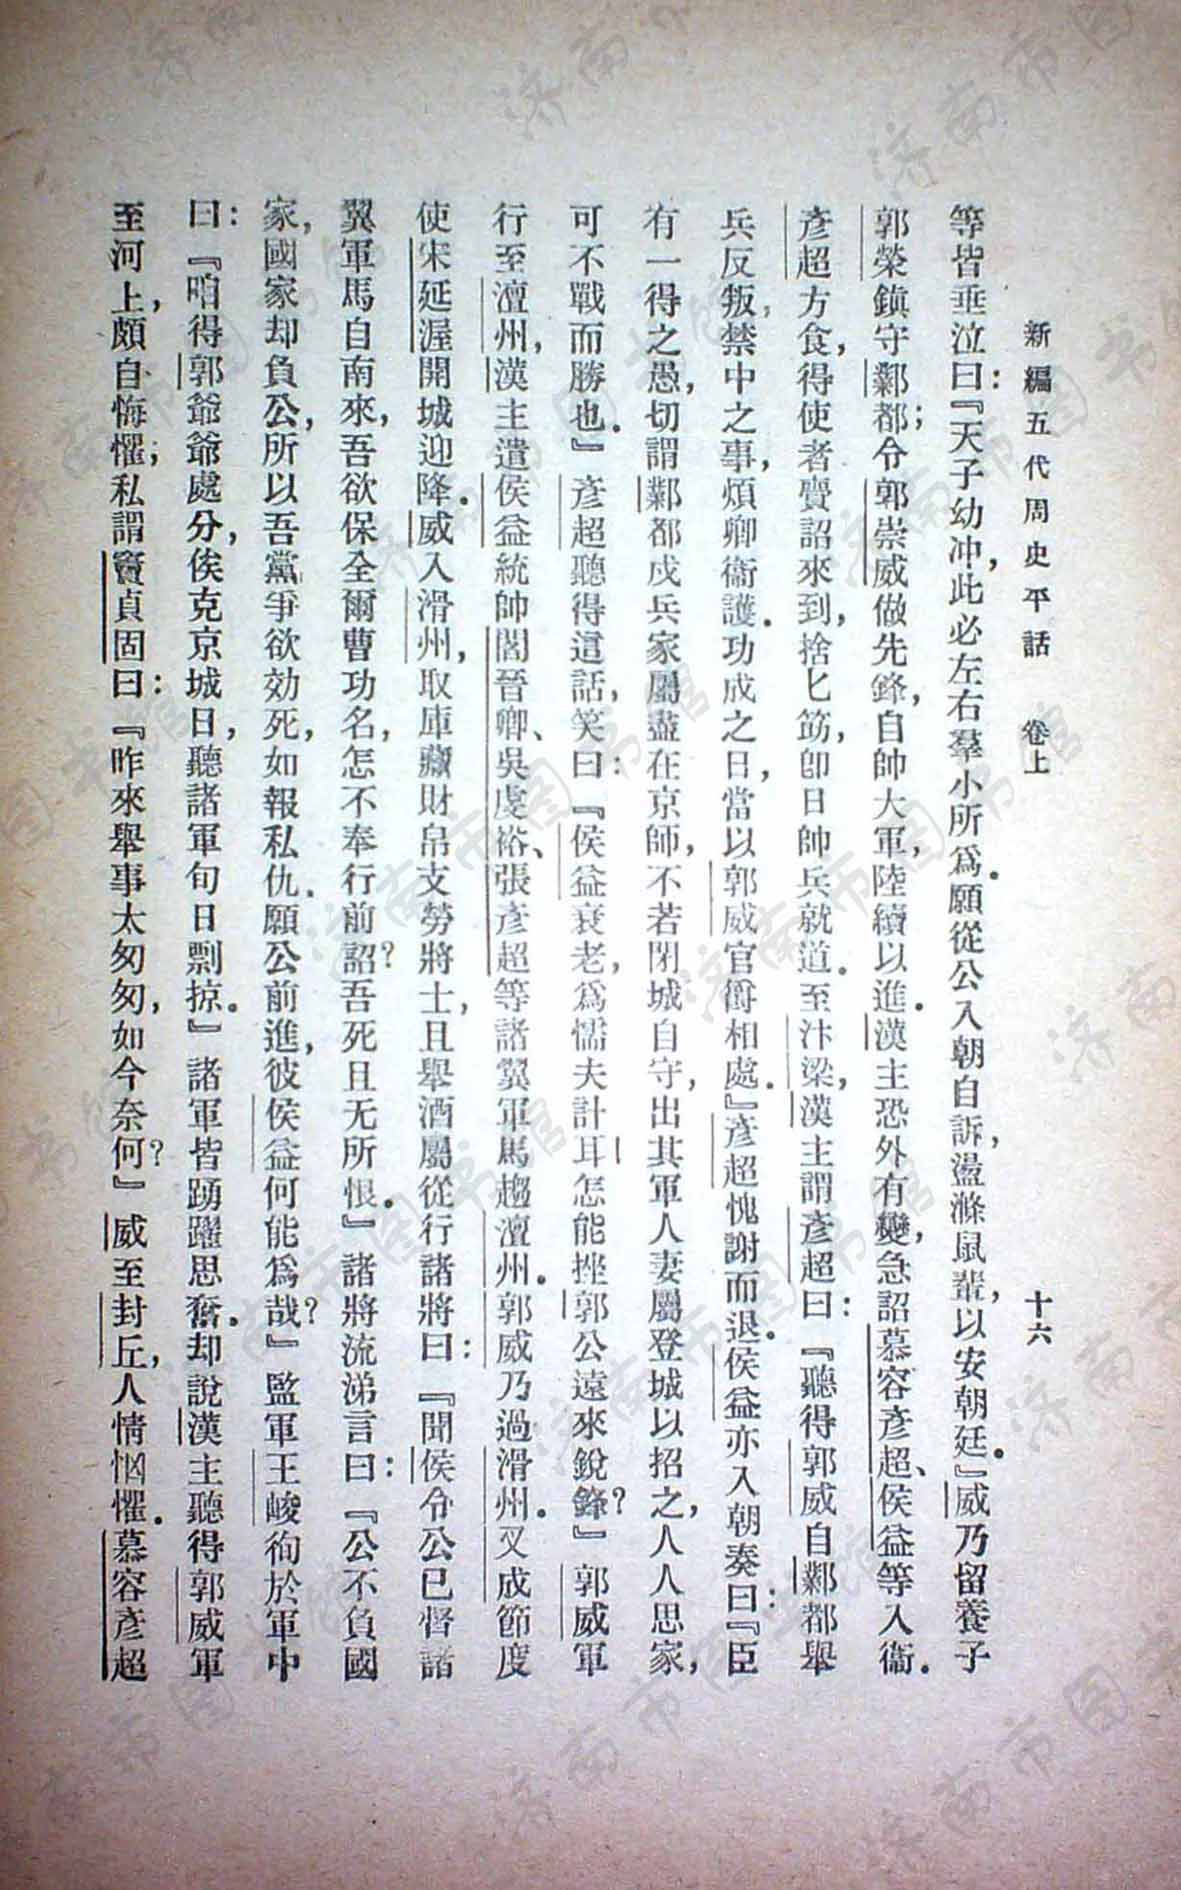 新編五代周史平話　卷上　十六
等皆垂泣曰：『天子幼冲，此必左右羣小所爲．願從公入朝自訴，盪滌鼠輩，以安朝廷．』威乃留養子
郭榮鎮守鄴都；令郭崇威做先鋒，自帥大軍陸續以進．漢主恐外有變，急詔慕容彥超、侯益等入衞．
彥超方食，得使者賫詔來到，捨匕筯，卽日帥兵就道．至汴梁，漢主謂彥超曰：『聽得郭威自鄴都舉
兵反叛，禁中之事，煩卿衞護．功成之日，當以郭威官爵相處．』彥超愧謝而退．侯益亦入朝奏曰：『臣
有一得之愚，切謂鄴都戍兵家屬盡在京師，不若閉城自守，出其軍人妻屬登城以招之，人人思家，
可不戰而勝也．』彥超聽得這話，笑曰：『侯益衰老，爲懦夫計耳！怎能挫郭公遠來銳鋒？』郭威軍
行至澶州，漢主遣侯益統帥閻晉卿、吳虔裕、張彥超等諸翼軍馬趨澶州．郭威乃過滑州．又成節度
使宋延渥開城迎降．威入滑州，取庫藏財帛支勞將士，且舉酒屬從行諸將曰：『聞侯令公已督諸
翼軍馬自南來，吾欲保全爾曹功名，怎不奉行前詔？吾死且无所恨．』諸將流涕言曰：『公不負國
家，國家却負公，所以吾黨爭欲効死，如報私仇．願公前進，彼侯益何能爲哉？』監軍王峻徇於軍中
曰：『咱得郭爺爺處分，俟克京城日，聽諸軍旬日剽掠．』諸軍皆踴躍思奮．却說漢主聽得郭威軍
至河上，頗自悔懼；私謂竇貞固曰：『昨來舉事太匆匆，如今奈何？』威至封丘，人情恟懼．慕容彥超